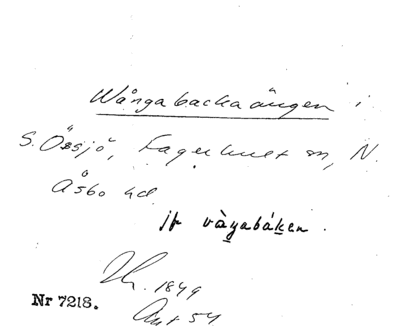 Wångabackaängen i
S. Össjö, Fagerhult sn, N.
Åsbo hd
jfr vàgabáken.
1849
Nr 7218.
Ant 54